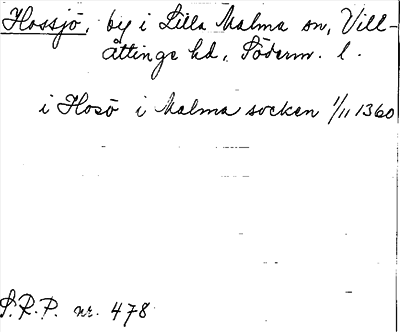 Hossjö, by i Lilla Malma sn, Vill-
åttinge hd., Söderm. l.
i Hosö i Malma socken 1/11 1360
S.R.P. nr. 478